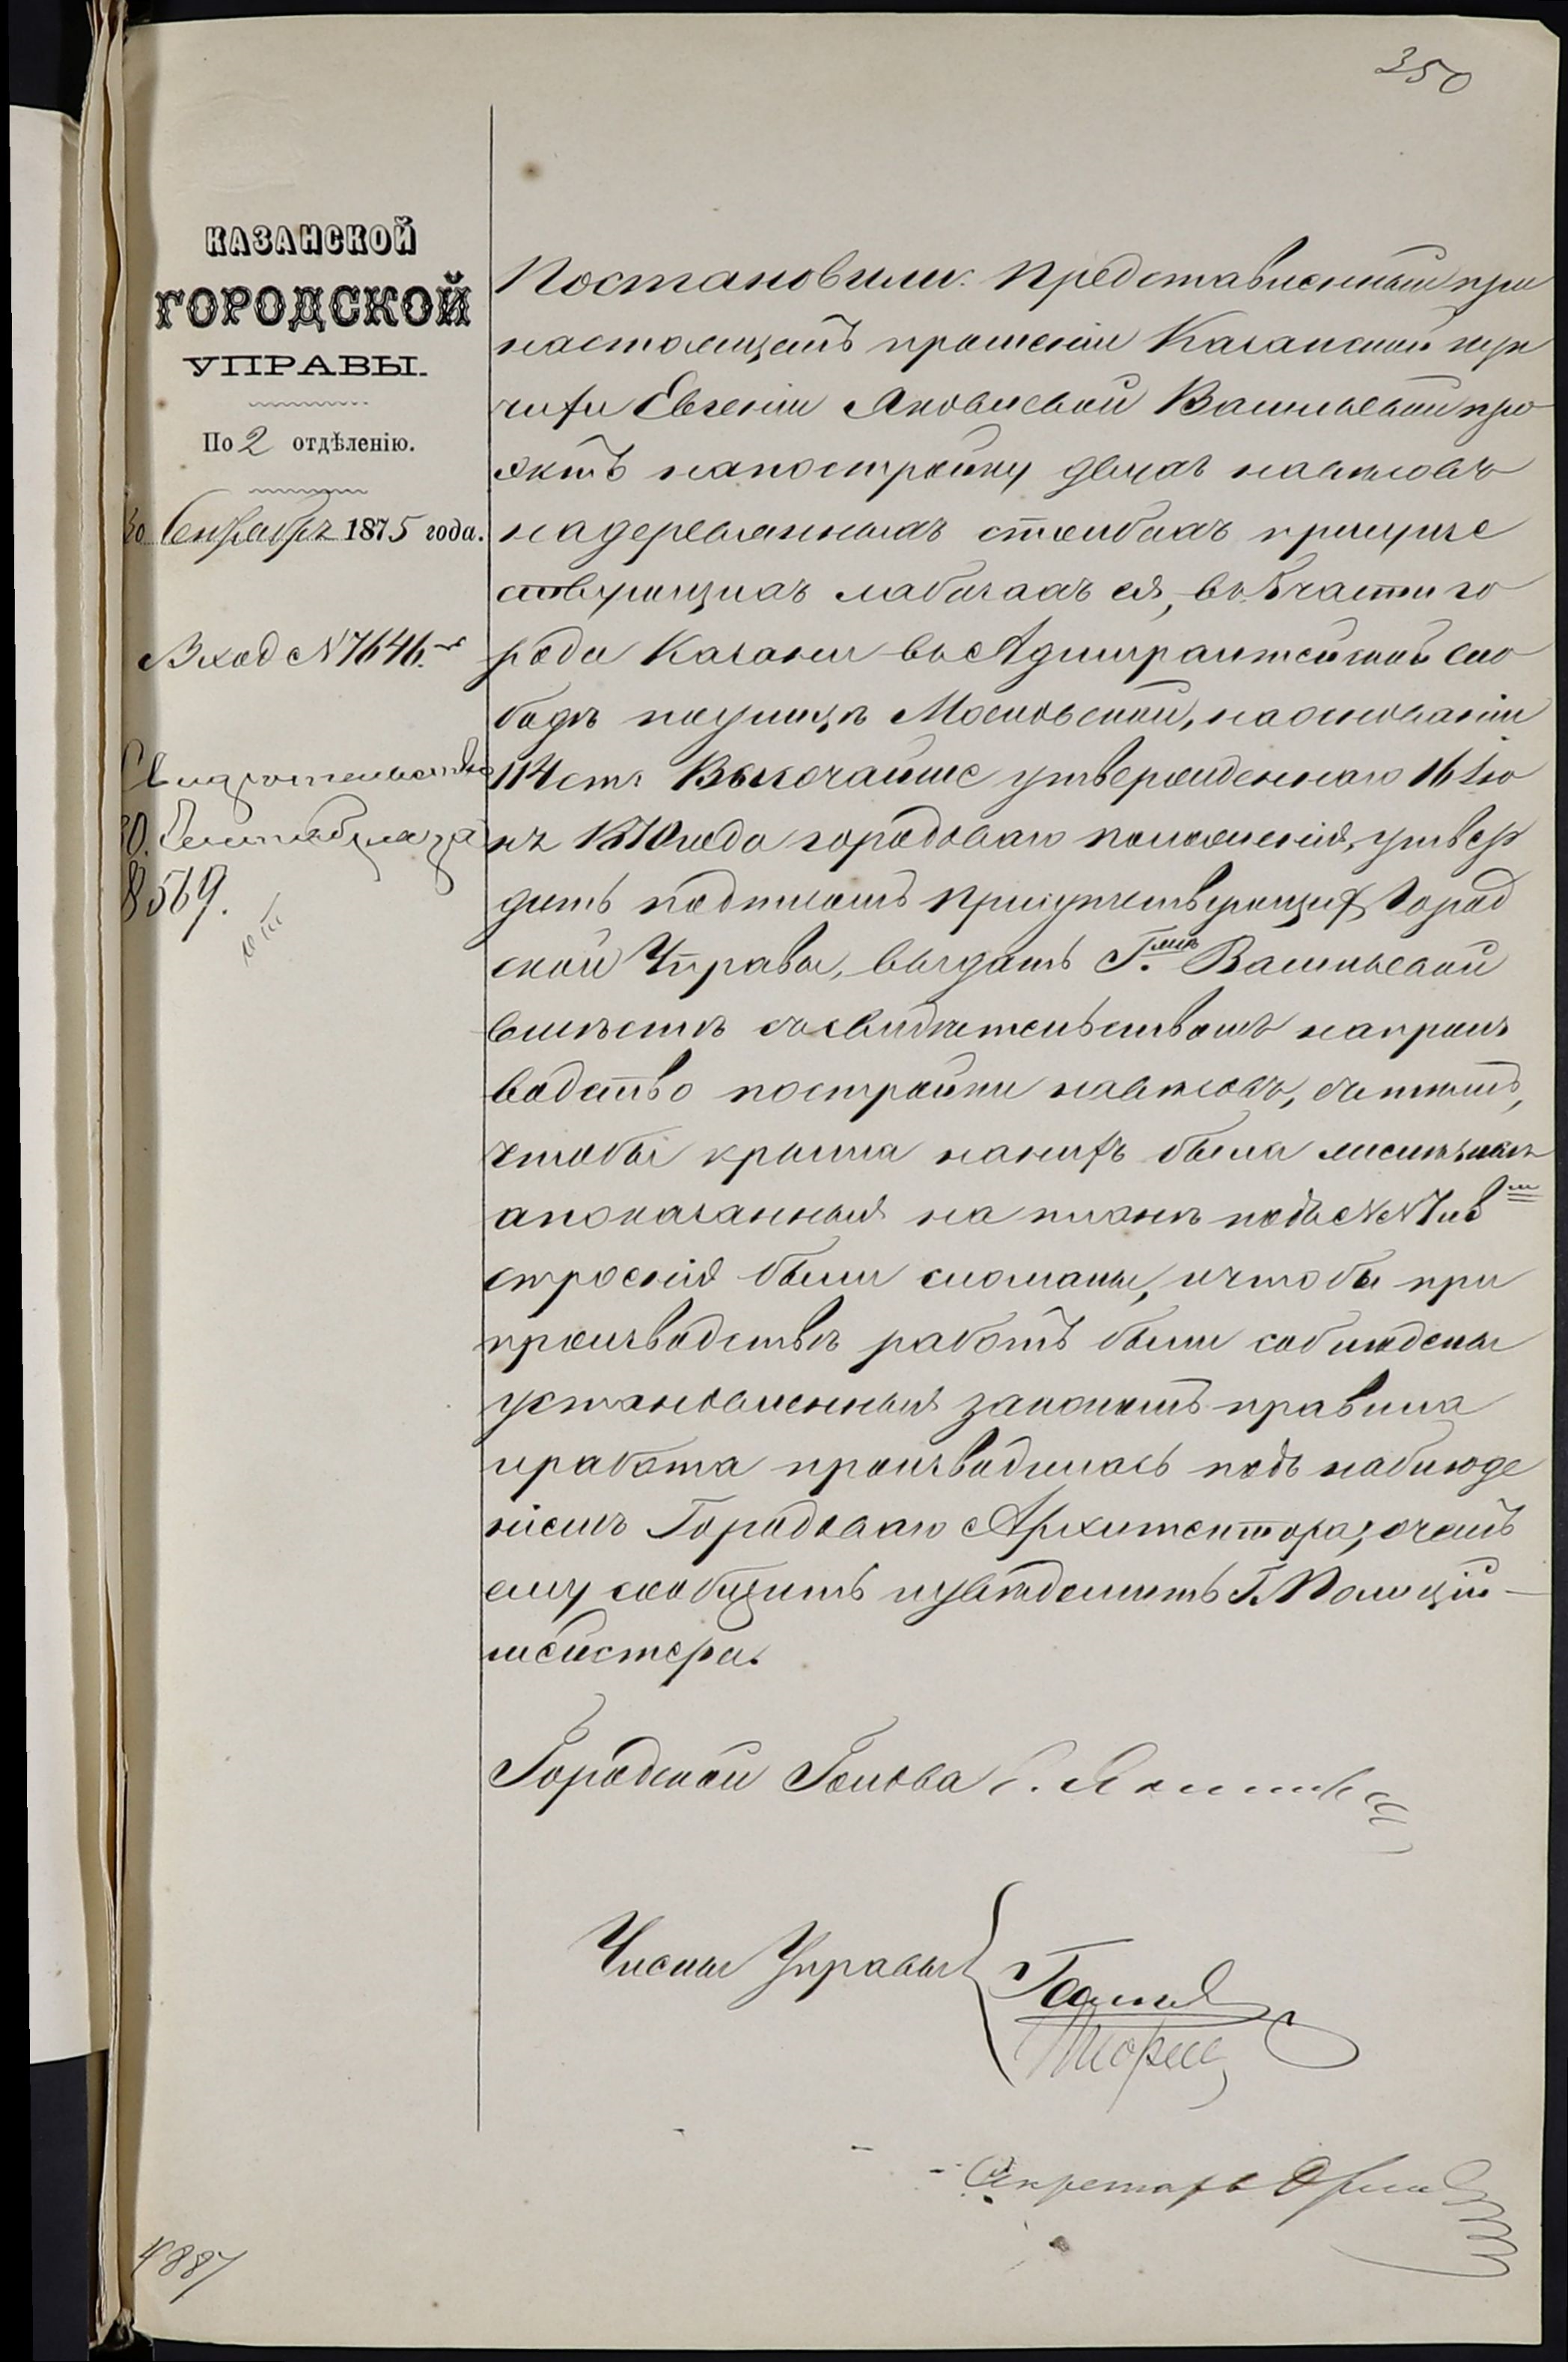 350
КАЗАНСКОЙ
ГОРОДСКОЙ
УПРАВЫ.
По 2 отдѣленію.
30 Сентября 1875 года.
Вход № 7646.
Свидѣтельство
30. Сентября за
8569.
Постановили: Представленный при
настоящемъ прошеніи Казанской куп
чихи Евгеніи Яковлевой Васильевой про
эктъ на постройку двухъ навѣсовъ
на деревянныхъ столбахъ при суще
ствующихъ лабазахъ ея, въ 5 части го
рода Казани въ Адмиралтейской сло
бодѣ по улицѣ Московской, на основаніи
114 ст. Высочайше утвержденнаго 16 Ію
ня 1870 года городоваго положенія, утвер
дить подписомъ присутствующих Город
ской Управы, выдать Г.жѣ Васильевой
вмѣстѣ съ свидѣтельствомъ на произ
водство постройки навѣсовъ, съ тѣмъ,
чтобы крыша на нихъ была желѣзная
а показанныя на планѣ подъ №№ 7 и 8
строенія были сломаны, и чтобы при
производствѣ работъ были соблюдены
установленныя закономъ правила
и работа производилась подъ наблюде
ніемъ Городоваго Архитектора, о чемъ
ему сообщить и увѣдомить Г. Полицій-
мейстера.
Городской Голова
Члены Управы
Секретарь
4887